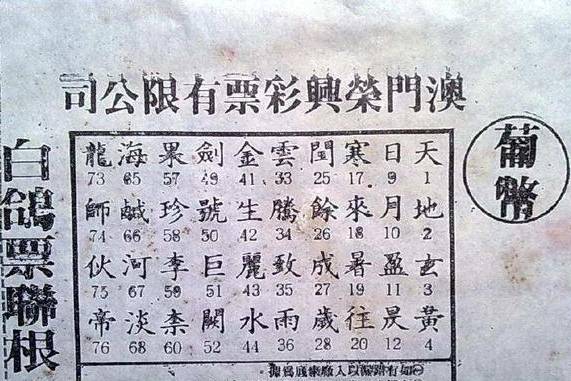 澳門榮興彩票有限公司
葡幣
天 日 寒 閏 雲 金 劍 果 海 龍
1 9 17 25 33 41 49 57 65 73
地 月 來 餘 騰 生 號 珍 鹹 師
2 10 18 26 34 42 50 58 66 74
玄 盈 暑 成 致 麗 巨 李 河 伙
3 11 19 27 35 43 51 59 67 75
黃 昃 往 歲 雨 水 闕 柰 淡 帝
4 12 20 28 36 44 52 60 68 76
如有錯漏以入廠票底為據
白鴿票聯根